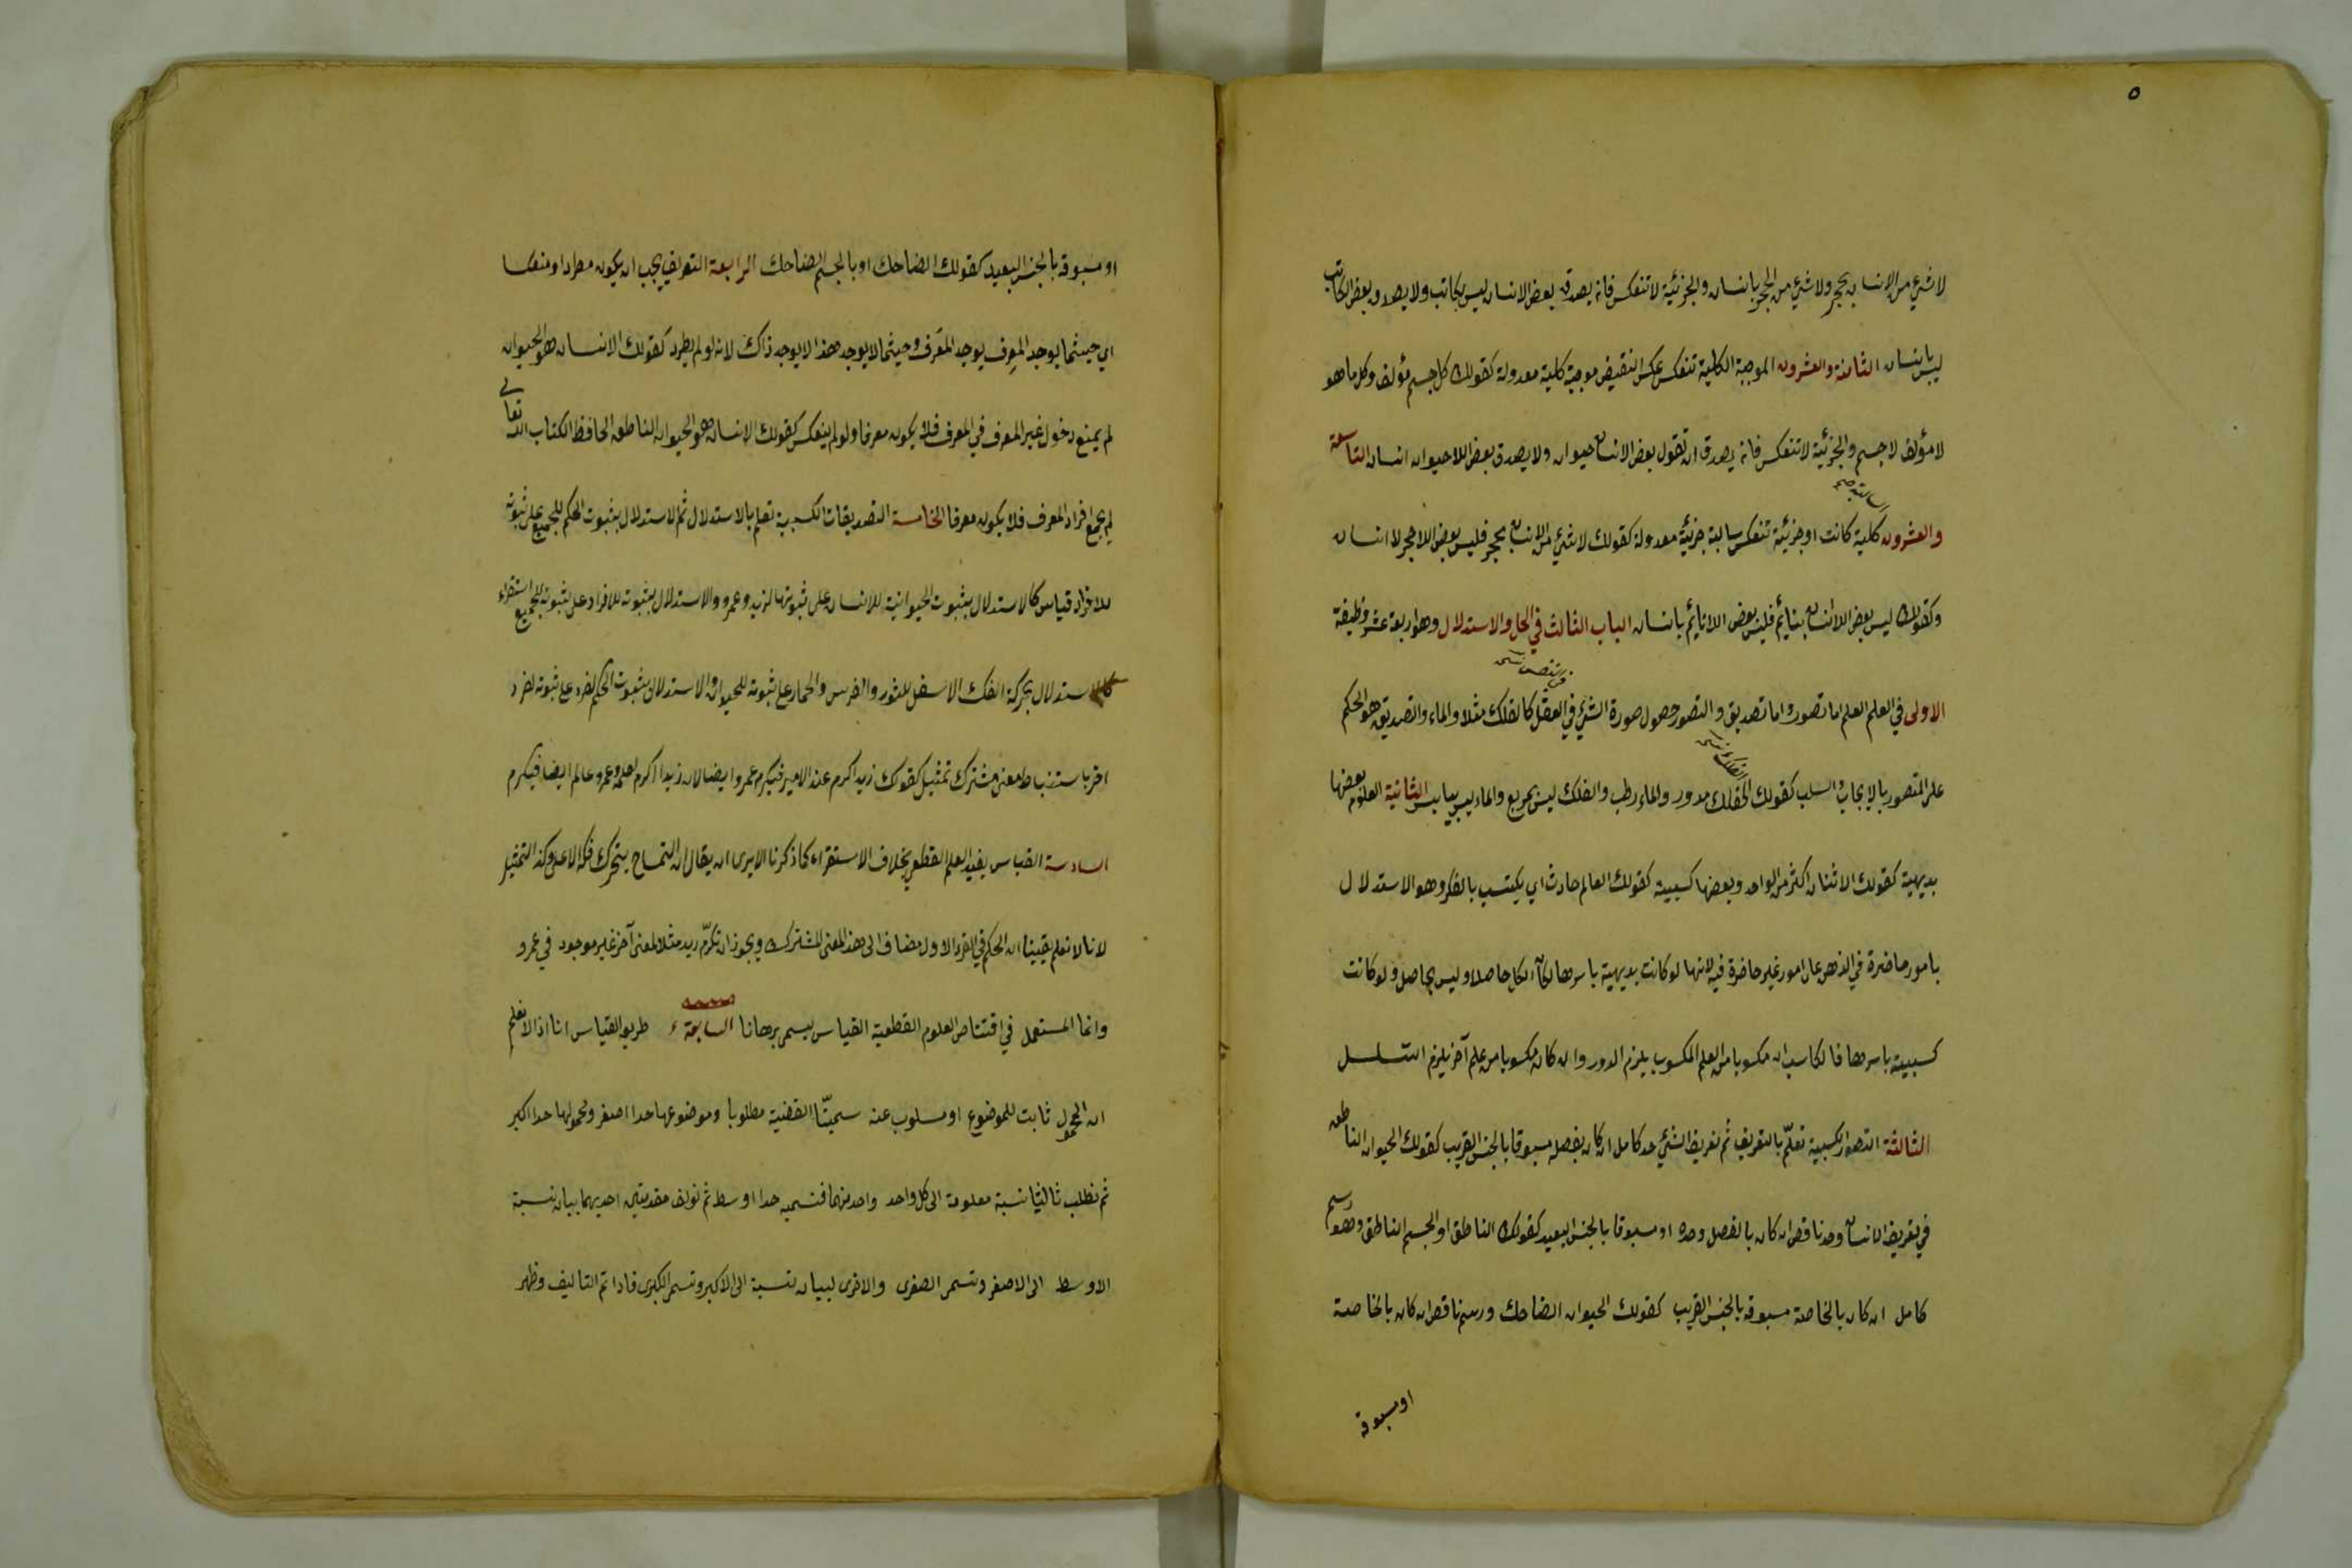 ٥
لا شيء من الانسان بحجر ولا شيء من الحجر بانسان والجزئية لا تنعكس فانه يصدق بعض الانسان ليس بكاتب ولا يصدق بعض الكاتب
ليس بانسان الثامنة والعشرون الموجبة الكلية تنعكس عكس النقيض موجبة كلية معدولة كقولك كل جسم مؤلف وكل ما هو
لا مؤلف لا جسم والجزئية لا تنعكس فانه يصدق ان تقول بعض الانسان حيوان ولا يصدق بعض اللاحيوان انسان التاسعة
والعشرون السالبة كلية كانت او جزئية تنعكس سالبة جزئية معدولة كقولك لا شيء من الانسان بحجر فليس بعض اللاحجر لا انسان
وكقولك ليس بعض الانسان بنايم فليس بعض اللانايم بانسان الباب الثالث في الحل والاستدلال وهو اربعة عشر وظيفة
الاولى في العلم العلم اما تصور واما تصديق والتصور حصول صورة الشيء في العقل كالفلك مثلا والماء والتصديق هو الحكم
على المتصور بالايجاب والسلب كقولك الفلك مدور والماء رطب والفلك ليس بمربع والماء ليس بيابس الثانية العلوم بعضها
بديهية كقولك الاثنان اكثر من الواحد وبعضها كسبية كقولك العالم حادث اي يكتسب بالفكر وهو الاستدلال
بامور حاضرة في الذهن على امور غير حاضرة فيه لانها لو كانت بديهية باسرها لكان الكل حاصلا وليس بحاصل ولو كانت
كسبية باسرها فالكاسب ان مكسوبا من العلم المكسوب يلزم الدور وان كان مكسوبا من علم آخر يلزم التسلسل
الثالثة التصورات كسبية تعلم بالتعريف ثم تعريف الشيء حد كامل ان كان بفصل مسبوقا بالجنس القريب كقولك الحيوان الناطق
في تعريف الانسان وحد ناقص ان كان بالفصل وحده او مسبوقا بالجنس البعيد كقولك الناطق او الجسم الناطق وهو رسم
كامل ان كان بالخاصة مسبوقة بالجنس القريب كقولك الحيوان الضاحك ورسم ناقص ان كان بالخاصة
او مسبوقة
او مسبوقة بالجنس البعيد كقولك الضاحك او بالجسم الضاحك الرابعة التعريف يجب ان يكون مطردا ومنعكسا
اي حيثما يوجد المعرِف يوجد المعرَف وحيثما لا يوجد هذا لا يوجد ذاك لانه لو لم يطرد كقولك الانسان هو الحيوان
لم يمنع دخول غير المعرف في المعرف فلا يكون معرفا ولو لم ينعكس كقولك الانسان هو الحيوان الناطق الحافظ الكتاب الله تعالى
لم يجمع افراد المعرف فلا يكون معرفا الخامسة التصديقات الكسبية تعلم بالاستدلال ثم الاستدلال بثبوت الحكم للجميع على ثبوته
للافراد قياس كالاستدلال بثبوت الحيوانية للانسان على ثبوتها لزيد وعمرو والاستدلال بثبوته للافراد على ثبوته للجميع استقراء
كالاستدلال بحركة الفك الاسفل للثور والفرس والحمار على ثبوته للحيوان والاستدلال بثبوت الحكم لفرد على ثبوته لفرد
اخر باستنباط معنى مشترك تمثيل كقولك زيد اكرم عند الامير فيكرم عمرو ايضا لان زيدا اكرم لعلمه وعمرو عالم ايضا فيكرم
السادسة القياس يفيد العلم القطعي بخلاف الاستقراء كما ذكرنا الا يرى ان يقال ان التمساح يتحرك فكه الاعلى وكذا التمثيل
لانا لا نعلم يقينا ان الحكم في الفرد الاول مضاف الى هذا المعنى المشترك ويجوز ان تكرم زيد مثلا لمعنى آخر غير موجود في عمرو
وانما المستعمل في اقتناص العلوم القطعية القياس يسمى برهانا السابعة طريق القياس انا اذا لا نعلم
ان المحمول ثابت للموضوع او مسلوب عنه سمينا القضية مطلوبا وموضوعها حدا اصغر ومحمولها حدا اكبر
ثم نطلب ثالثا نسبة معلومة الى كل واحد واحد منهما فنسميه حدا اوسط ثم نؤلف مقدمتين احديهما ببيان نسبة
الاوسط الى الاصغر وتسمى الصغرى والاخرى لبيان نسبة الى الاكبر وتسمى الكبرى فاذا تم التاليف وظهر